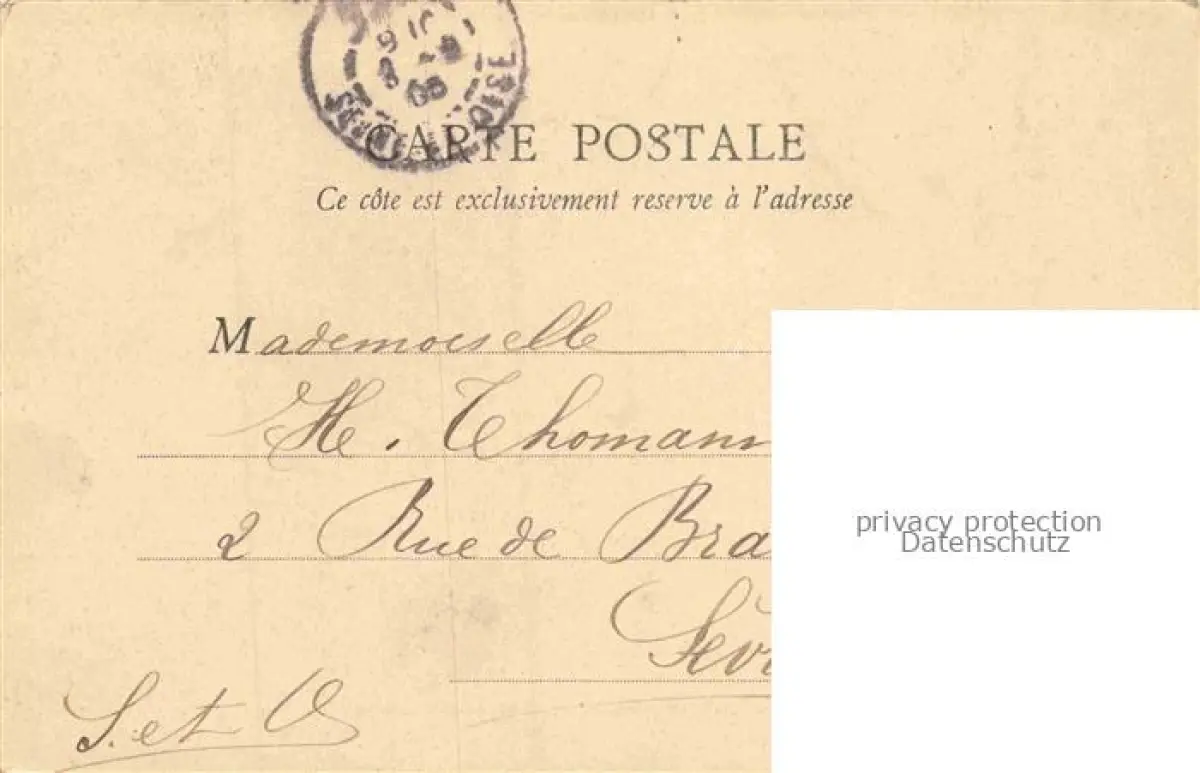 9
8 - 9
05
SEINE ET OISE
CARTE POSTALE
Ce côte est exclusivement reserve à l'adresse
Mademoiselle
H. Thomann
2 Rue de Bra
Sèv
S. et O
privacy protection
Datenschutz